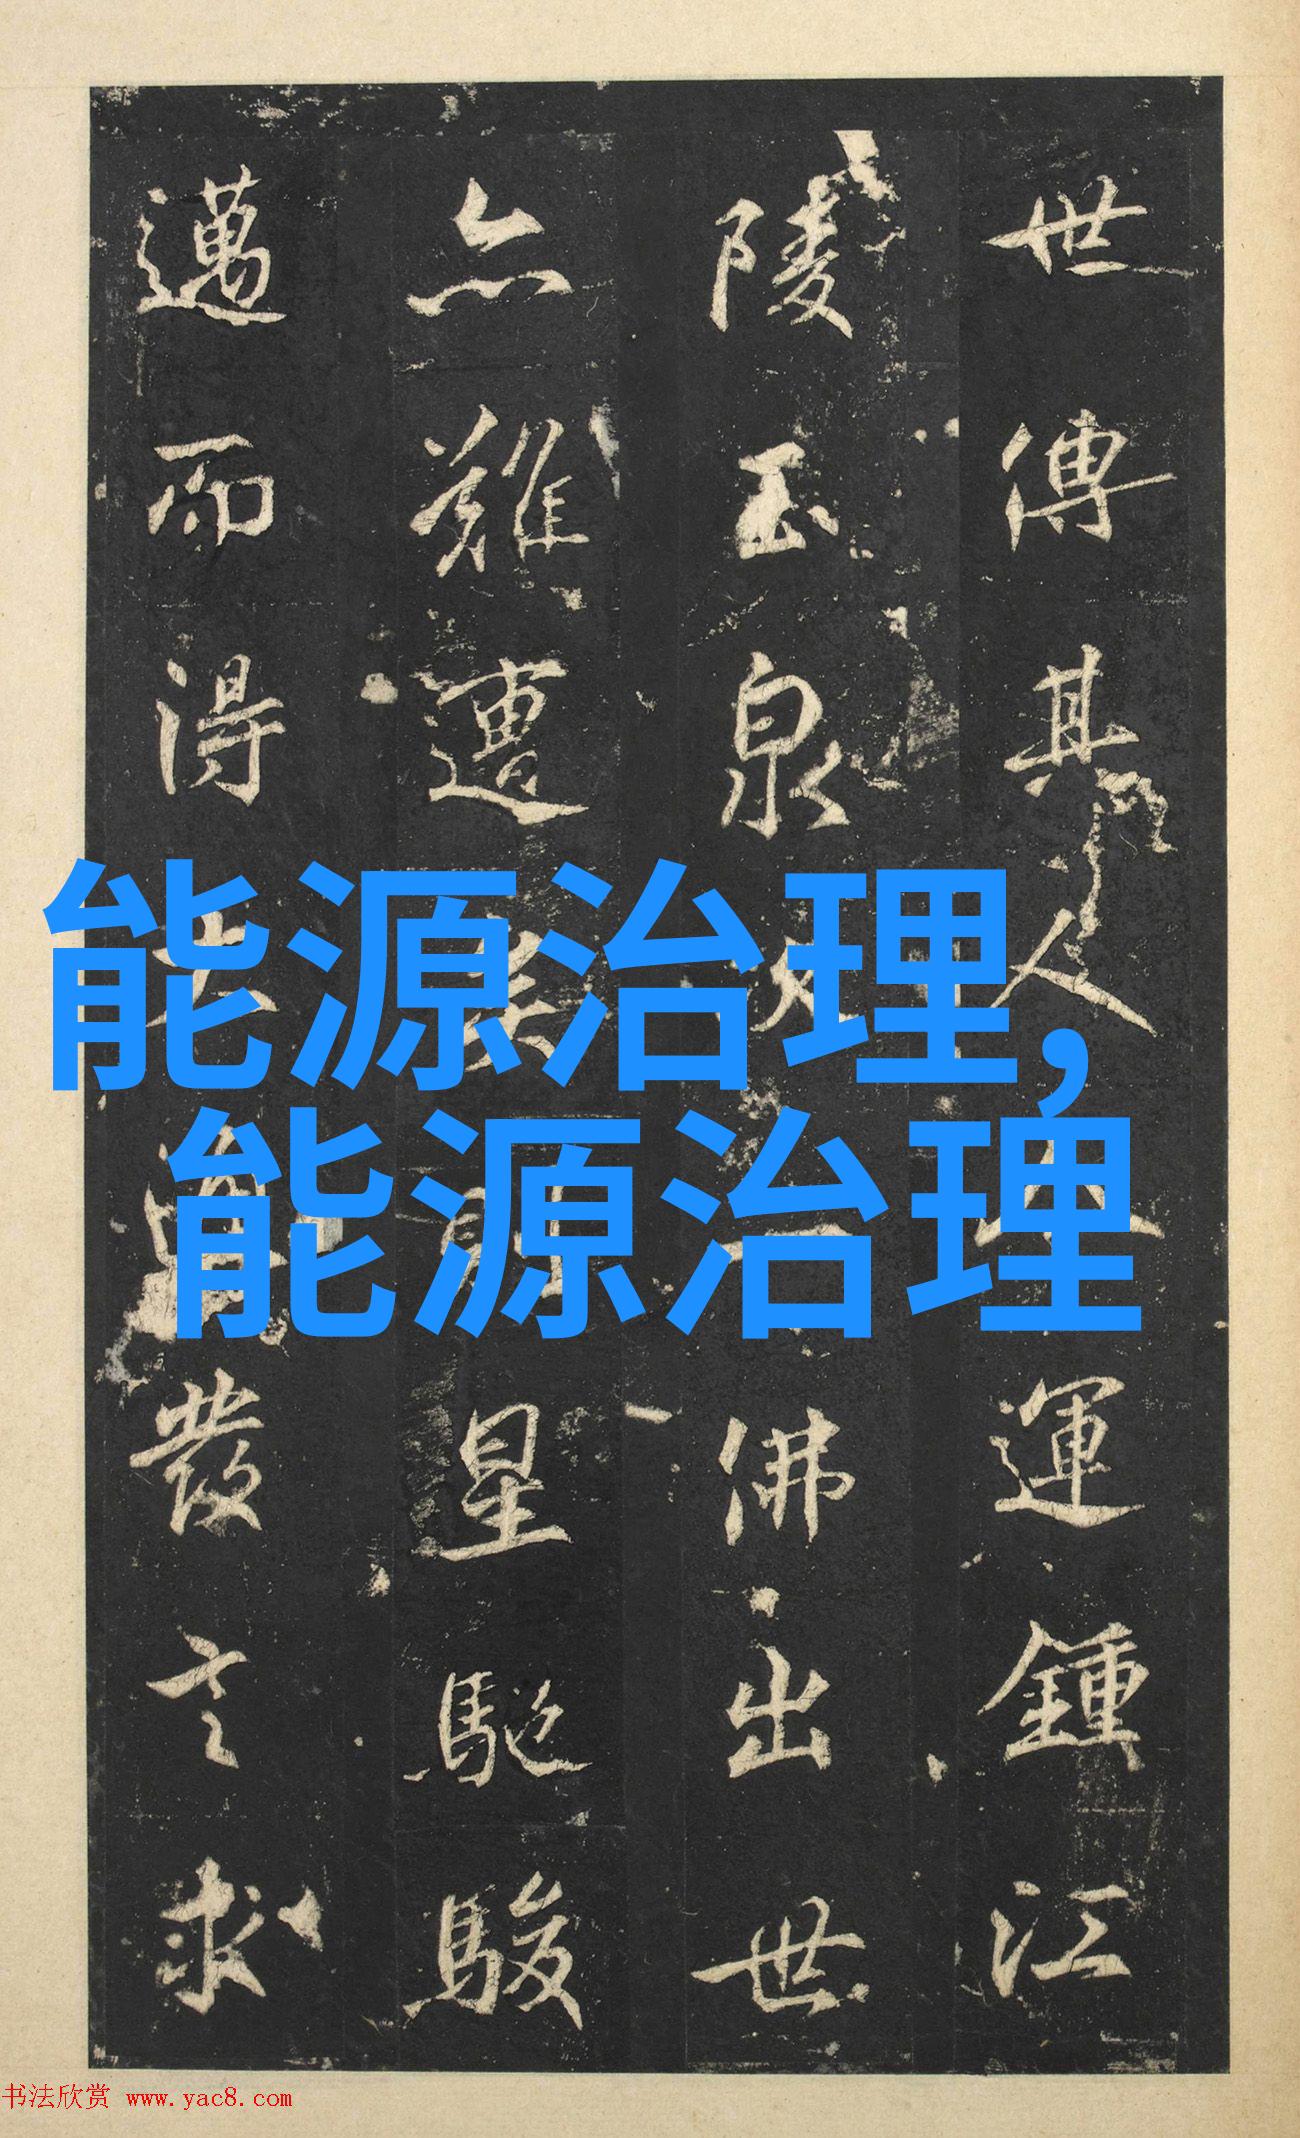 世傳其人運鍾江
陵玉泉一佛出世
亦難遭星馳駿
邁而得發言求
能源治理,
能源治理
书法欣赏 www.yac8.com